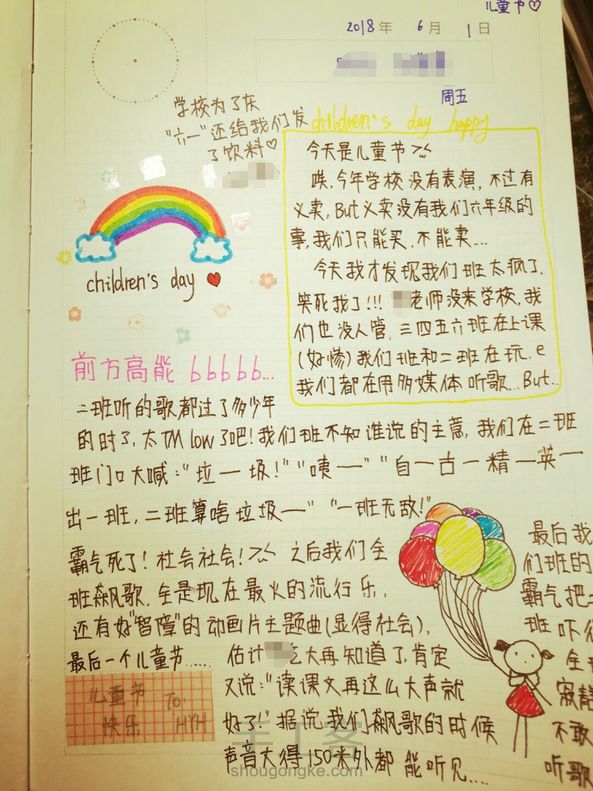 儿童节♡
2018年 6月 1日
周五
学校为了庆
"六一"还给我们发
了饮料♡
children's day happy
今天是儿童节>.<
唉,今年学校没有表演,不过有
义卖,But义卖没有我们六年级的
事,我们只能买,不能卖...
今天我才发现我们班太疯了,
笑死我了!!! 老师没来学校,我
们也没人管,三四五六班在上课
(好惨)我们班和二班在玩,e
我们都在用多媒体听歌...But...
children's day
前方高能 bbbbb...
二班听的歌都过了多少年
的时了,太TM low了吧!我们班不知谁说的主意,我们在二班
班门口大喊:"垃一圾!" "咦一" "自一古一精一英一
出一班,二班算啥垃圾一" "一班无敌!"
霸气死了!社会社会!>.< 之后我们全
班飙歌,全是现在最火的流行乐,
还有好"智障"的动画片主题曲(显得社会),
最后一个儿童节......
估计 大再知道了,肯定
又说:"读课文再这么大声就
好了!"据说我们飙歌的时候
声音大得150米外都能听见....
最后我
们班的
霸气把二
班吓得
全班
寂静
不敢
听歌
儿童节
快乐
To:
HYH
手工客
shougongke.com